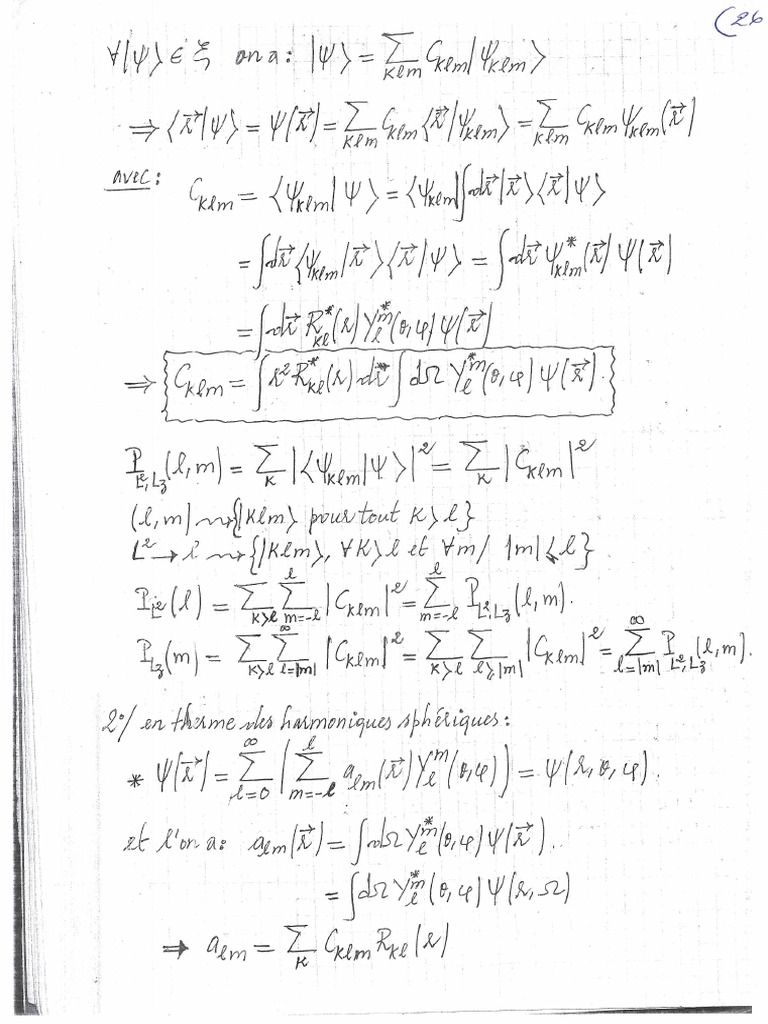 (26
∀|ψ⟩ ∈ ξ on a: |ψ⟩ = ∑_{klm} C_{klm} |ψ_{klm}⟩
⇒ ⟨r⃗|ψ⟩ = ψ(r⃗) = ∑_{klm} C_{klm} ⟨r⃗|ψ_{klm}⟩ = ∑_{klm} C_{klm} ψ_{klm}(r⃗)
avec: C_{klm} = ⟨ψ_{klm}|ψ⟩ = ⟨ψ_{klm}|∫dr⃗|r⃗⟩⟨r⃗|ψ⟩
= ∫dr⃗ ⟨ψ_{klm}|r⃗⟩⟨r⃗|ψ⟩ = ∫dr⃗ ψ*_{klm}(r⃗) ψ(r⃗)
= ∫dr⃗ R*_{kl}(r) Y_l^{m*}(θ,φ) ψ(r⃗)
⇒ C_{klm} = ∫r² R*_{kl}(r) dr ∫dΩ Y_l^{m*}(θ,φ) ψ(r⃗).
P_{L²,Lz}(l,m) = ∑_k |⟨ψ_{klm}|ψ⟩|² = ∑_k |C_{klm}|²
(l,m) ⇝ {|klm⟩ pour tout k>l}
L² → l ⇝ {|klm⟩, ∀k>l et ∀m/ |m|≤l}
P_{L²}(l) = ∑_{k>l} ∑_{m=-l}^{l} |C_{klm}|² = ∑_{m=-l}^{l} P_{L²,Lz}(l,m).
P_{Lz}(m) = ∑_{k>l} ∑_{l=|m|}^{∞} |C_{klm}|² = ∑_{k>l} ∑_{l≥|m|} |C_{klm}|² = ∑_{l=|m|}^{∞} P_{L²,Lz}(l,m).
2°/ en therme des harmoniques sphériques:
* ψ(r⃗) = ∑_{l=0}^{∞} (∑_{m=-l}^{l} a_{lm}(r⃗) Y_l^m(θ,φ)) = ψ(r,θ,φ).
et l'on a: a_{lm}(r⃗) = ∫dΩ Y_l^{m*}(θ,φ) ψ(r⃗).
= ∫dΩ Y_l^{m*}(θ,φ) ψ(r,Ω)
⇒ a_{lm} = ∑_k C_{klm} R_{kl}(r)